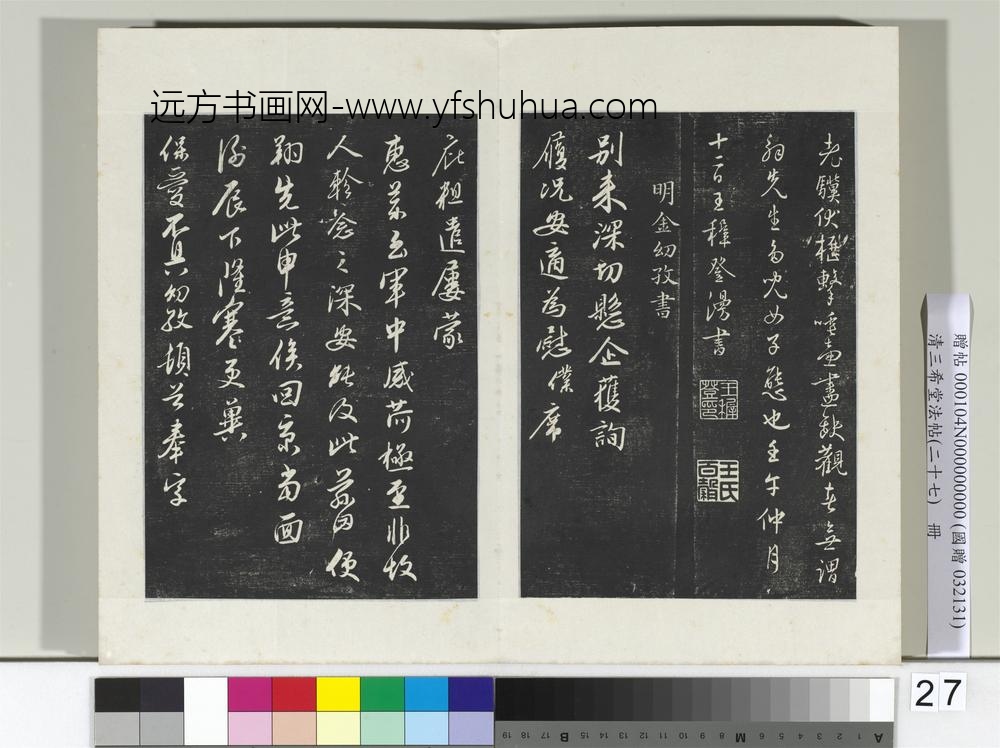 远方书画网-www.yfshuhua.com
老驥伏櫪擊唾壺盡缺觀者無謂
翁先生多兒女子態也壬午仲月
十二日王穉登漫書
王穉登印
王氏百穀
明金幼孜書
別來深切懸企獲詢
履況安適為慰僕席
庇粗遣屢蒙
惠茶至軍中感荷極至非故
人軫念之深安能及此茲因便
翔先此申意俟回京當面
謝辰下隆寒更冀
保愛不具幼孜頓首奉字
贈帖 000104N000000000 (國贈 032131)
清三希堂法帖(二十七) 冊
27